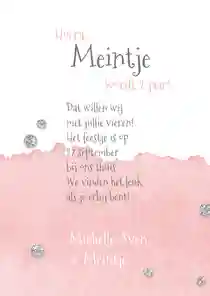 Hoera
Meintje
wordt 2 jaar!
Dat willen wij
met jullie vieren!
Het feestje is op
27 september
bij ons thuis
We vinden het leuk
als je erbij bent!
Michelle, Sven
& Meintje